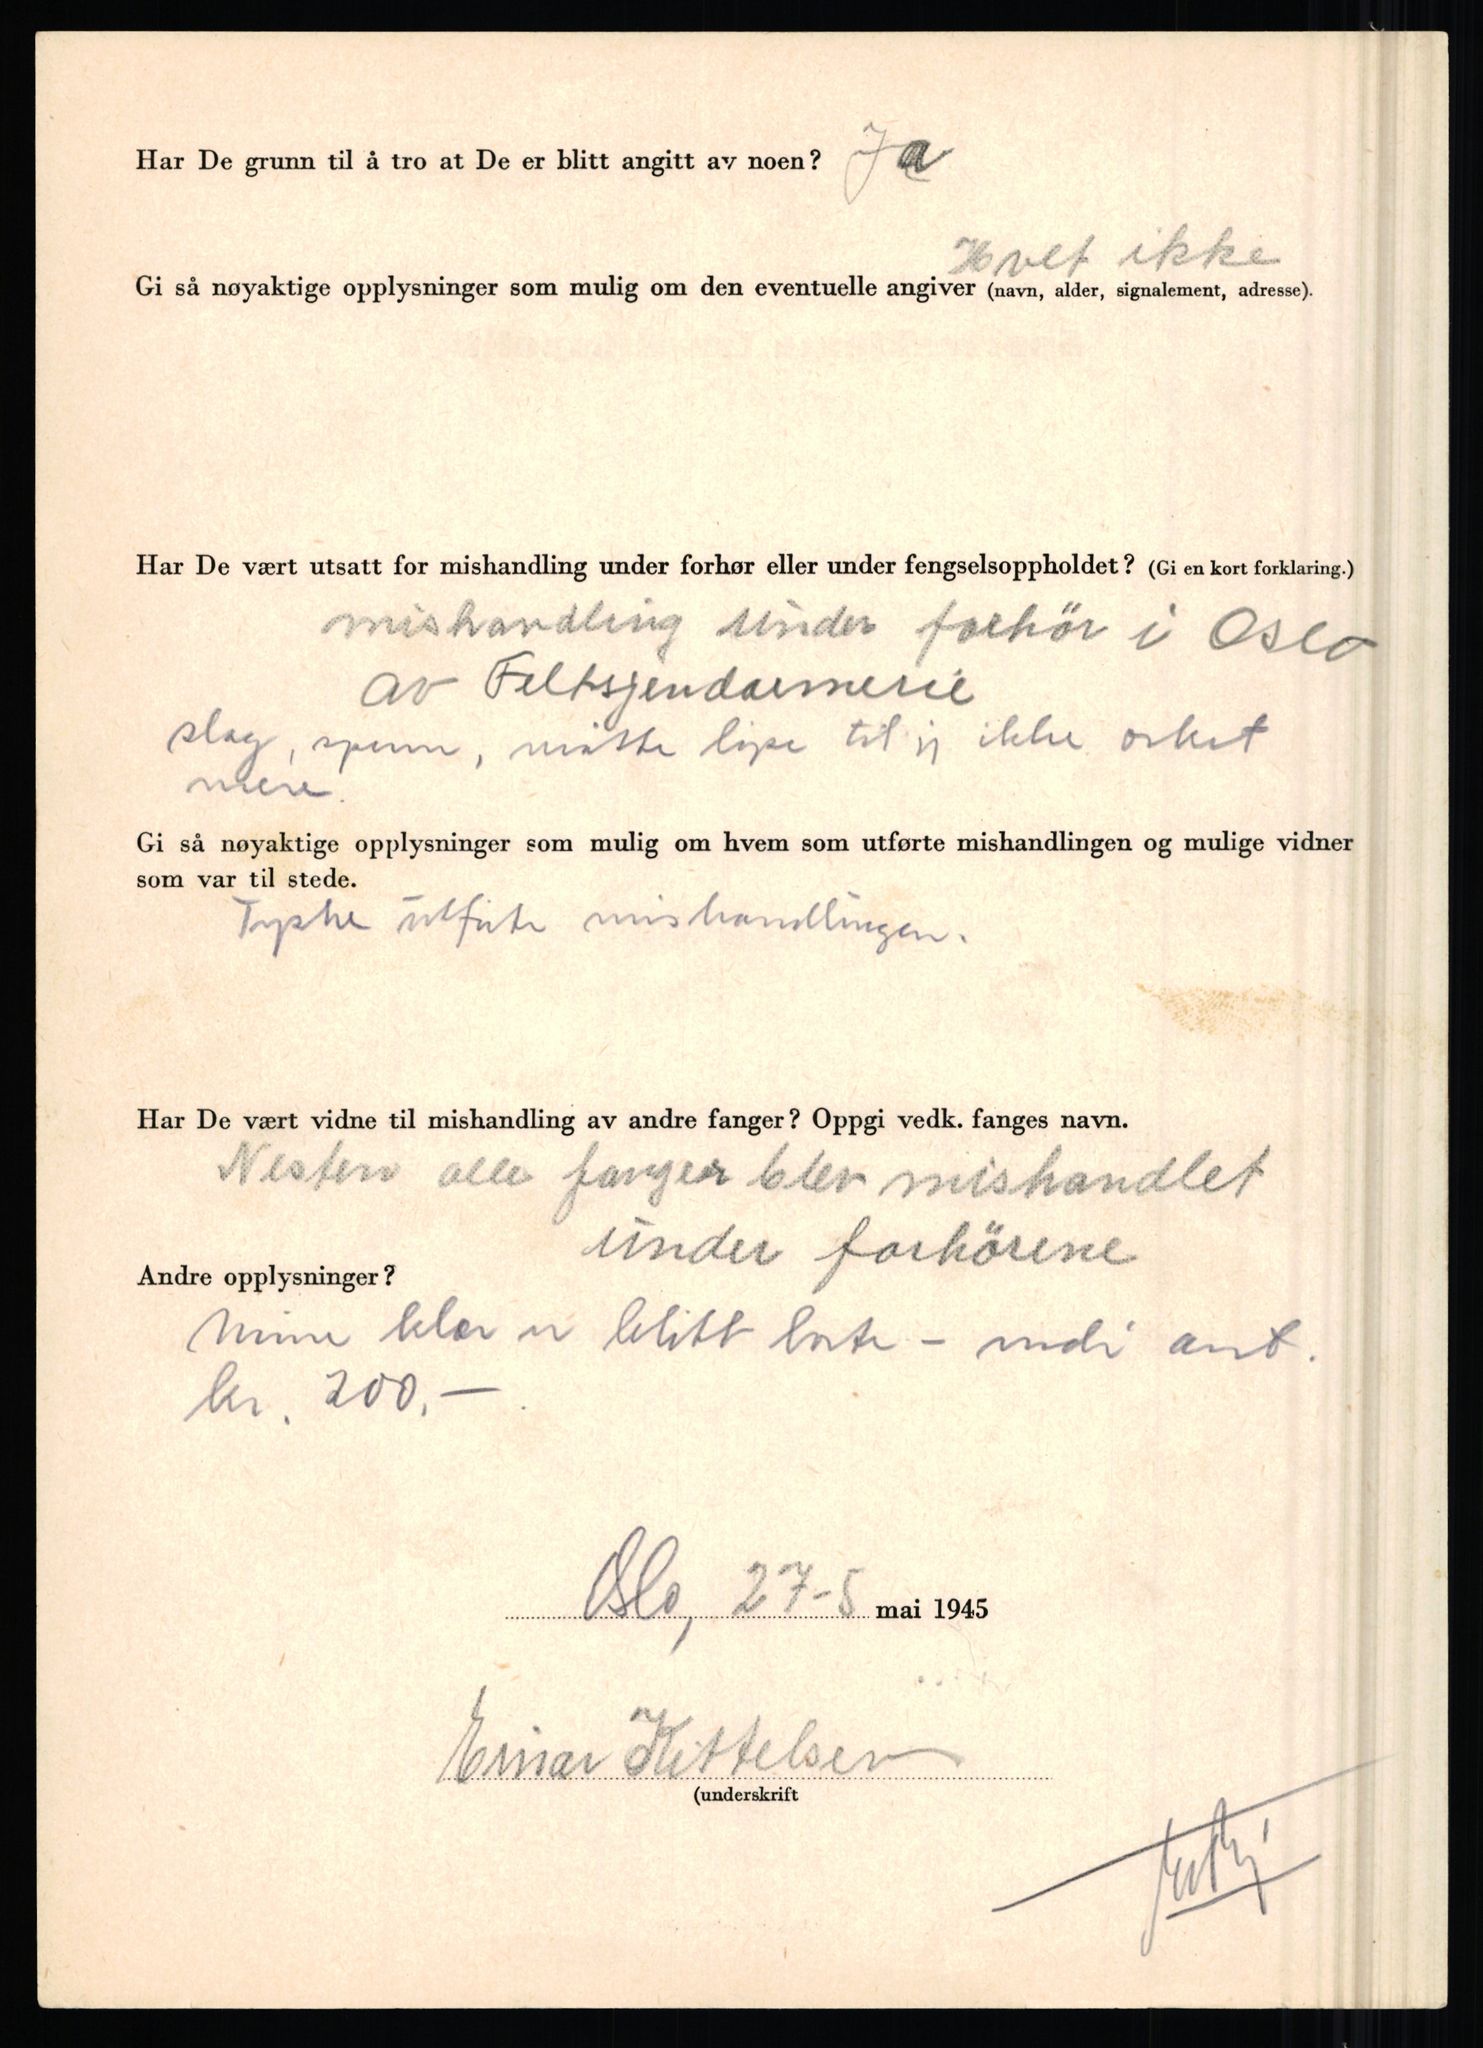 Har De grunn til å tro at De er blitt angitt av noen? Ja
Hvet ikke
Gi så nøyaktige opplysninger som mulig om den eventuelle angiver (navn, alder, signalement, adresse).
Har De vært utsatt for mishandling under forhør eller under fengselsoppholdet? (Gi en kort forklaring.)
mishandling under forhör i Oslo
av Feltsjendarmerie
slag, spenn, måtte løpe til jeg ikke orket
mere.
Gi så nøyaktige opplysninger som mulig om hvem som utførte mishandlingen og mulige vidner
som var til stede.
Tyske utførte mishandlingen.
Har De vært vidne til mishandling av andre fanger? Oppgi vedk. fanges navn.
Nesten alle fanger blev mishandlet
under forhörene
Andre opplysninger?
Mine klær er blitt borte – verdi ant.
kr. 200.—
Oslo, 27-5 mai 1945
Einar Kittelsen
(underskrift